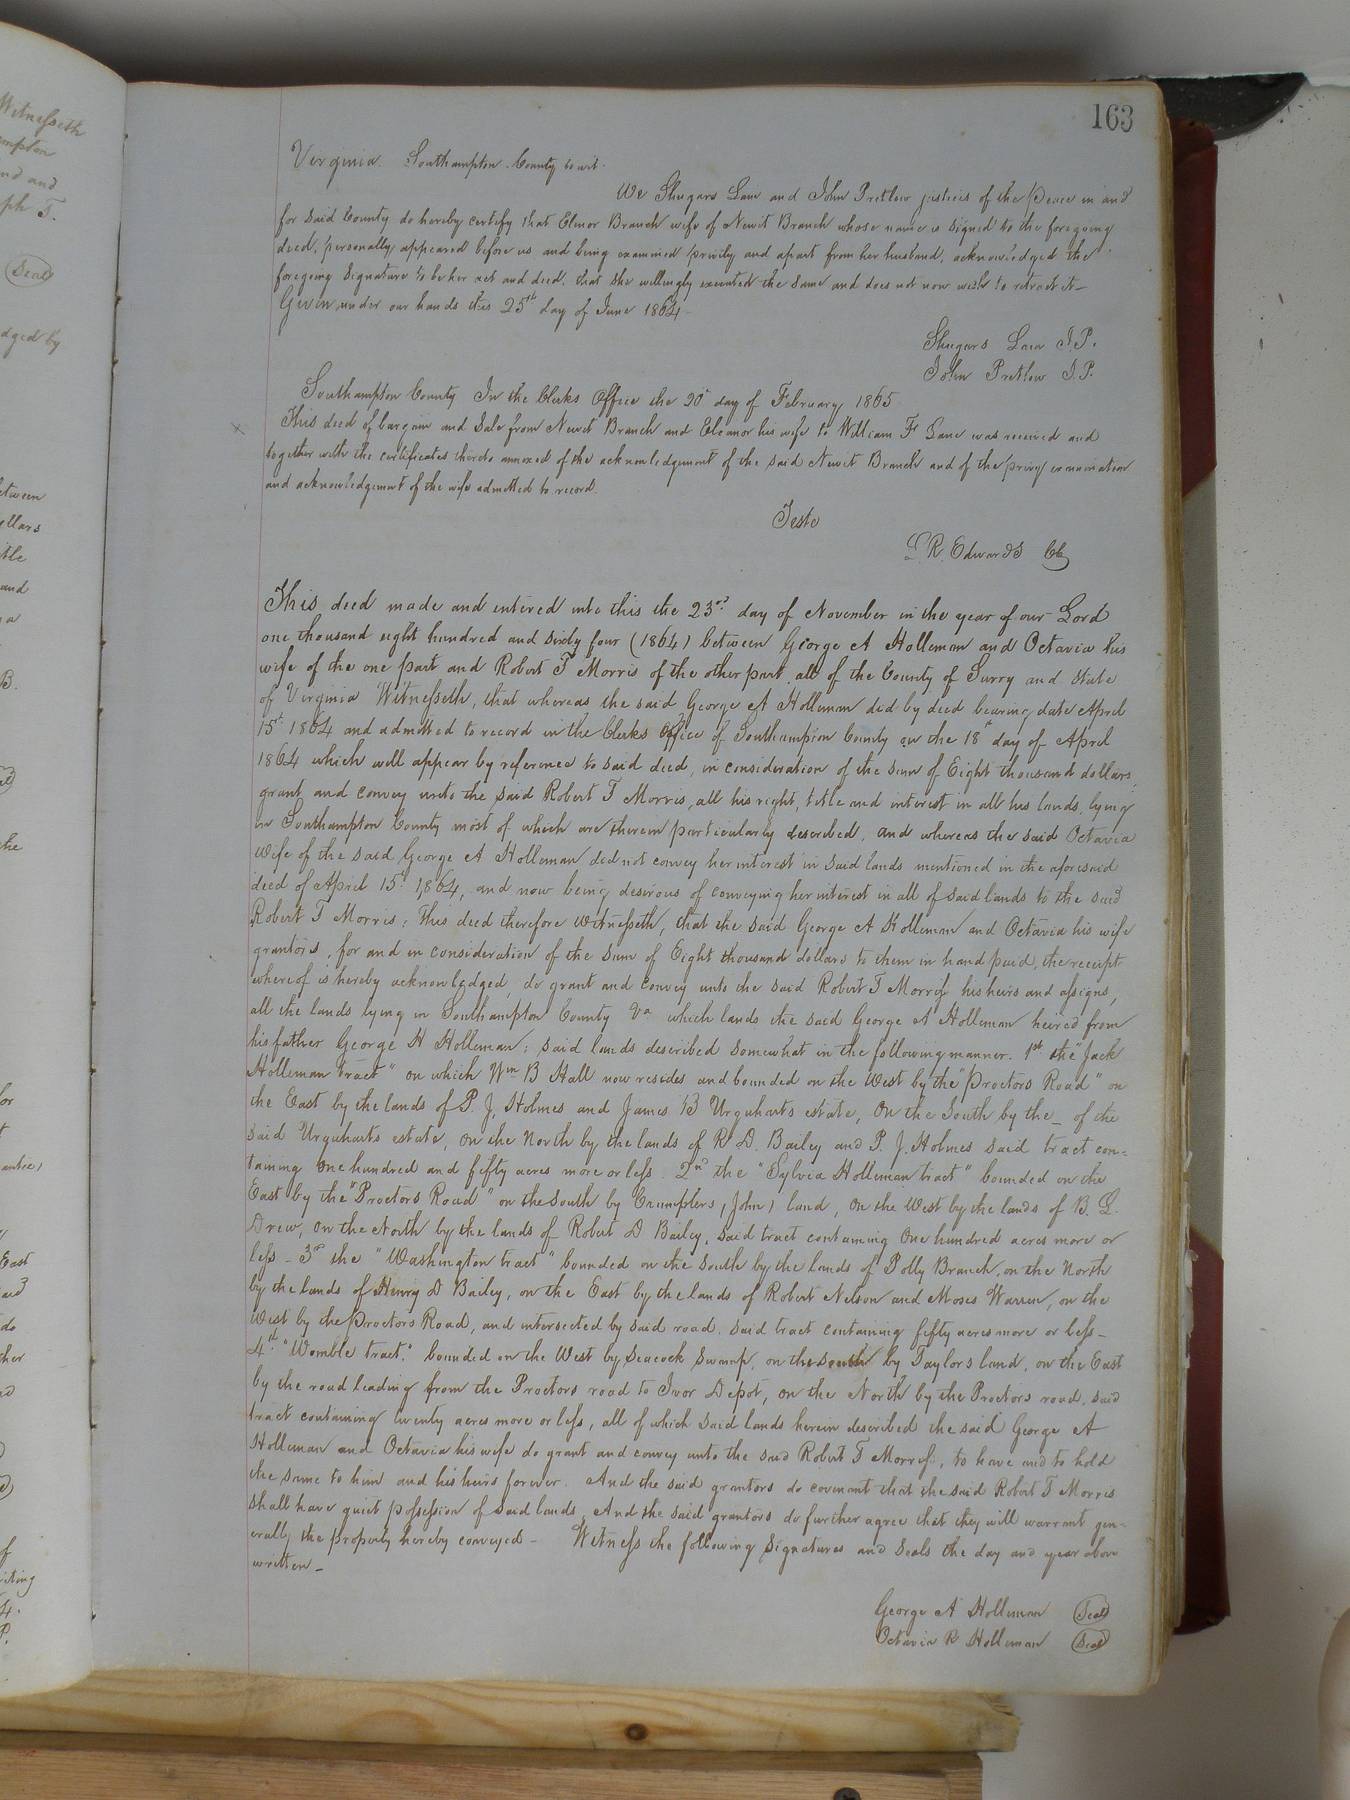 163
Virginia. Southampton County to wit.
We Shugars Lain and John Pretlow justices of the Peace in and
for said County do hereby certify that Elinor Branch wife of Newit Branch whose name is signed to the foregoing
deed, personally appeared before us and being examined privily and apart from her husband, acknowledged the
foregoing signature to be her act and deed, that she willingly executed the same and does not now wish to retract it_
Given under our hands this 25th day of June 1864.
Shugars Lain J.P.
John Pretlow J.P.
Southampton County In the Clerks Office the 20th day of February 1865
This deed of bargain and Sale from Newit Branch and Eleanor his wife to William F Lane was received and
together with the certificates thereto annexed of the acknowledgement of the said Newit Branch and of the privy examination
and acknowledgement of the wife admitted to record.
Teste
L. R. Edwards CC
This deed made and entered into this the 23rd day of November in the year of our Lord
one thousand eight hundred and sixty four (1864) between George A Holleman and Octavia his
wife of the one part and Robert T Morris of the other part, all of the County of Surry and State
of Virginia Witnesseth, that whereas the said George A Holleman did by deed bearing date April
15th 1864 and admitted to record in the Clerks Office of Southampton County on the 18th day of April
1864 which will appear by reference to said deed, in consideration of the sum of Eight thousand dollars,
grant and convey unto the said Robert T Morris, all his right, title and interest in all his lands, lying
in Southampton County most of which are therein particularly described, and whereas the said Octavia
wife of the said George A Holleman did not convey her interest in said lands mentioned in the aforesaid
deed of April 15th 1864, and now being desirous of conveying her interest in all of said lands to the said
Robert T Morris: This deed therefore witnesseth, that the said George A Holleman and Octavia his wife
grantors, for and in consideration of the sum of Eight thousand dollars to them in hand paid, the receipt
whereof is hereby acknowledged, do grant and convey unto the said Robert T Morris his heirs and assigns,
all the lands lying in Southampton County Va which lands the said George A Holleman heired from
his father George H Holleman; said lands described somewhat in the following manner. 1st the "Jack
Holleman tract" on which Wm B Hall now resides and bounded on the West by the "Proctors Road" on
the East by the lands of P. J. Holmes and James B Urquharts estate, on the South by the _ of the
said Urquharts estate, on the North by the lands of R. D. Bailey and P. J. Holmes said tract con=
taining one hundred and fifty acres more or less. 2nd the "Sylvia Holleman tract" bounded on the
East by the "Proctors Road" on the South by Crumplers (John) land, on the West by the lands of B. L.
Drew, on the North by the lands of Robert D Bailey, said tract containing One hundred acres more or
less - 3rd the "Washington tract" bounded on the South by the lands of Polly Branch, on the North
by the lands of Henry D Bailey, on the East by the lands of Robert Nelson and Moses Warren, on the
West by the Proctors Road, and intersected by said road, said tract containing fifty acres more or less_
4th "Womble tract," bounded on the West by Seacock Swamp, on the South by Taylors land, on the East
by the road leading from the Proctors road to Ivor Depot, on the North by the Proctors road, said
tract containing twenty acres more or less, all of which said lands herein described the said George A
Holleman and Octavia his wife do grant and convey unto the said Robert T Morris, to have and to hold
the same to him and his heirs forever. And the said grantors do covenant that the said Robert T Morris
shall have quiet possession of said lands, And the said grantors do further agree that they will warrant gen=
erally the property hereby conveyed - Witness the following signatures and seals the day and year above
written_
George A Holleman (Seal)
Octavia R Holleman (Seal)